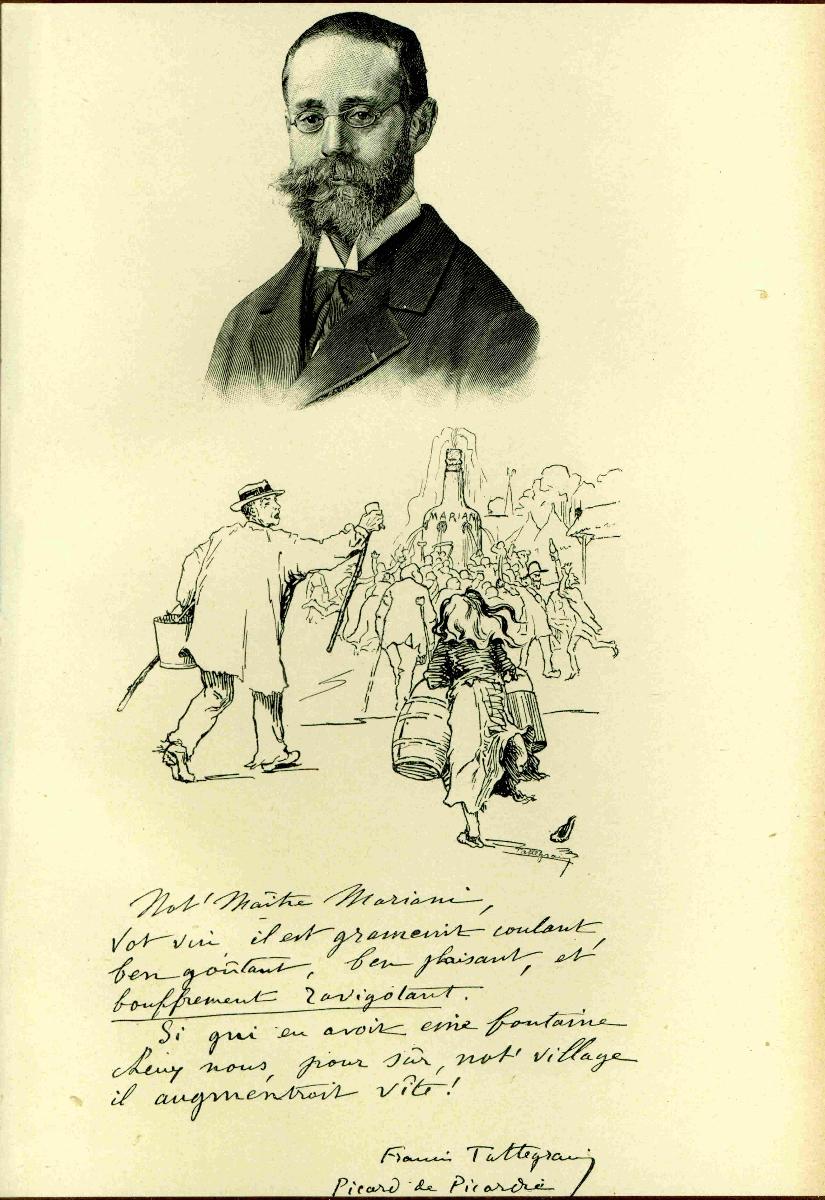 MARIANI
Tattegrain
Not' Maître Mariani,
Vot vin, il est gramenit coulant,
ben goûtant, ben plaisant, et
bouffrement ravigotant.
Si qui en avoit eine fontaine
cheuz nous, pour sûr, not' village
il augmentroit vite!
Francis Tattegrain
Picard de Picardie